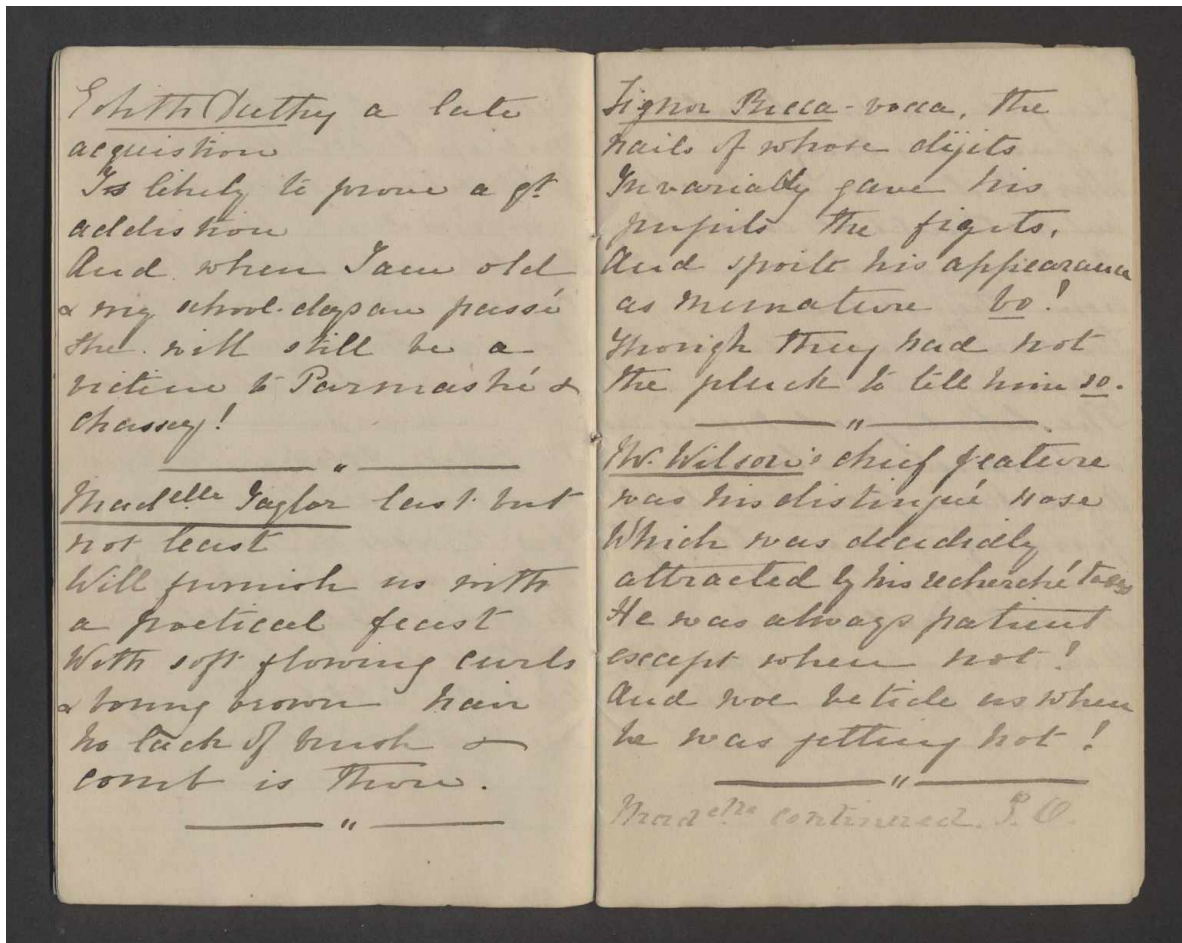 Edith Duthy a late
acquistion
Is likely to prove a gt
addistion
And when I am old
& my school-days are passé
She will still be a
victim to Parmashé &
chassey!
"
Madelle Taylor last but
not least
Will furnish us with
a poetical feast
With soft flowing curls
& bonny brown hair
No lack of brush &
comb is there.
"
Signor Bicca-vocca, the
nails of whose dijits
Invariably gave his
pupils the figits,
And spoilt his appearance
as mimature bo!
Though they had not
the pluck to tell him so.
"
Mr. Wilson's chief feature
was his distingué nose
Which was decidedly
attracted by his recherché toes
He was always patient
except when not!
And woe betide us when
he was getting hot!
"
Madelle continued. P.O.